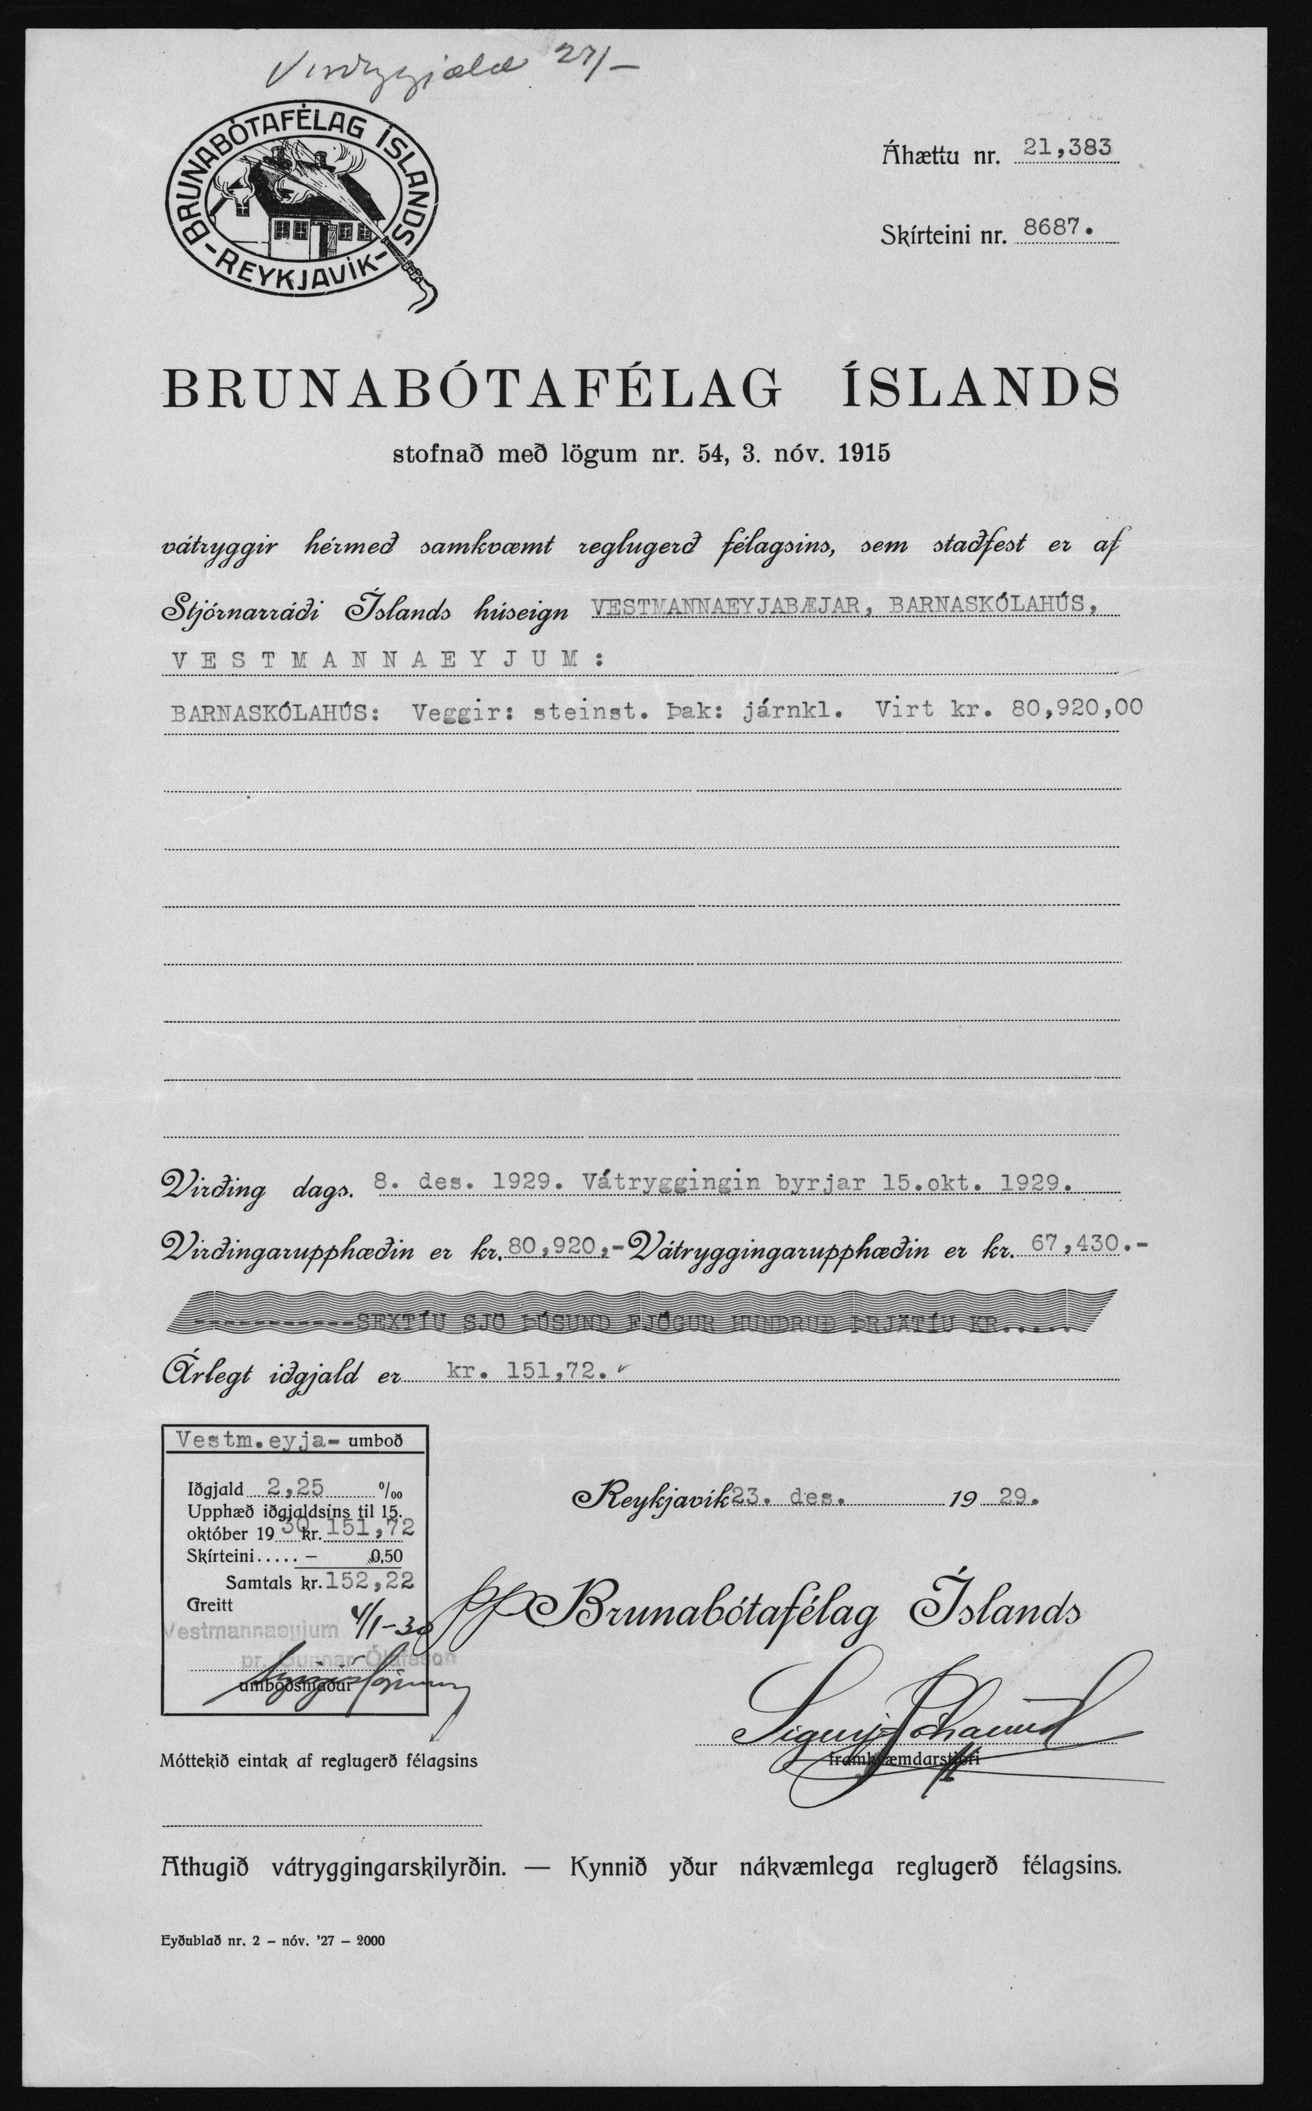 Virðingargjald 27/-
BRUNABÓTAFÉLAG ÍSLANDS
- REYKJAVÍK -
Áhættu nr. 21,383
Skírteini nr. 8687.
BRUNABÓTAFÉLAG ÍSLANDS
stofnað með lögum nr. 54, 3. nóv. 1915
vátryggir hérmeð samkvæmt reglugerð félagsins, sem staðfest er af
Stjórnarráði Íslands húseign VESTMANNAEYJABÆJAR, BARNASKÓLAHÚS,
V E S T M A N N A E Y J U M :
BARNASKÓLAHÚS: Veggir: steinst. Þak: járnkl. Virt kr. 80,920,00
Virðing dags. 8. des. 1929. Vátryggingin byrjar 15.okt. 1929.
Virðingarupphæðin er kr. 80,920,- Vátryggingarupphæðin er kr. 67,430.-
-----------SEXTÍU SJÖ ÞÚSUND FJÖGUR HUNDRUÐ ÞRJÁTÍU KR.....
Árlegt iðgjald er kr. 151,72.
Vestm.eyja- umboð
Iðgjald 2,25 0/00
Upphæð iðgjaldsins til 15.
október 1930 kr. 151,72
Skírteini..... — 0,50
Samtals kr. 152,22
Greitt 4/1-30
Vestmannaeyjum
pr. Gunnar Ólafsson
umboðsmaður
Reykjavík 23. des. 1929.
pp Brunabótafélag Íslands
framkvæmdarstjóri
Móttekið eintak af reglugerð félagsins
Athugið vátryggingarskilyrðin. — Kynnið yður nákvæmlega reglugerð félagsins.
Eyðublað nr. 2 – nóv. '27 – 2000